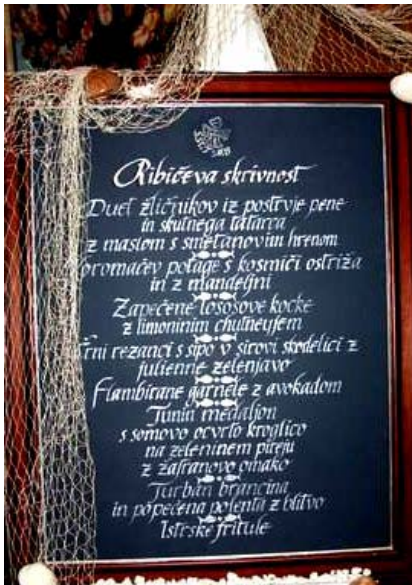 Ribičeva skrivnost
Duet žličnikov iz postrvje pene
in skutnega tatarca
z maslom s smetanovim hrenom
Koromačev potage s kosmiči ostriža
in z mandeljni
Zapečene lososove kocke
z limoninim chutneyjem
Črni rezanci s sipo v sirovi skodelici z
julienne zelenjavo
Flambirane garnele z avokadom
Tunin medaljon
s somovo ocvrto kroglico
na zeleninem pireju
z žafranovo omako
Turban brancina
in popečena polenta z blitvo
Istrske fritule